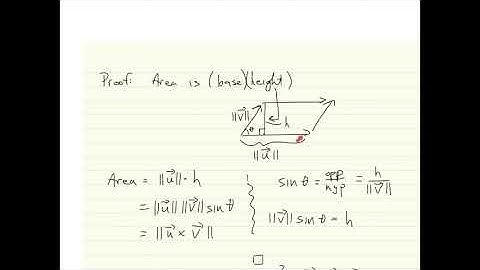 Proof: Area is (base)(height)
||v⃗||
θ
h
||u⃗||
Area = ||u⃗||·h
= ||u⃗|| ||v⃗|| sin θ
= ||u⃗ × v⃗||
sin θ = opp/hyp = h/||v⃗||
||v⃗|| sin θ = h